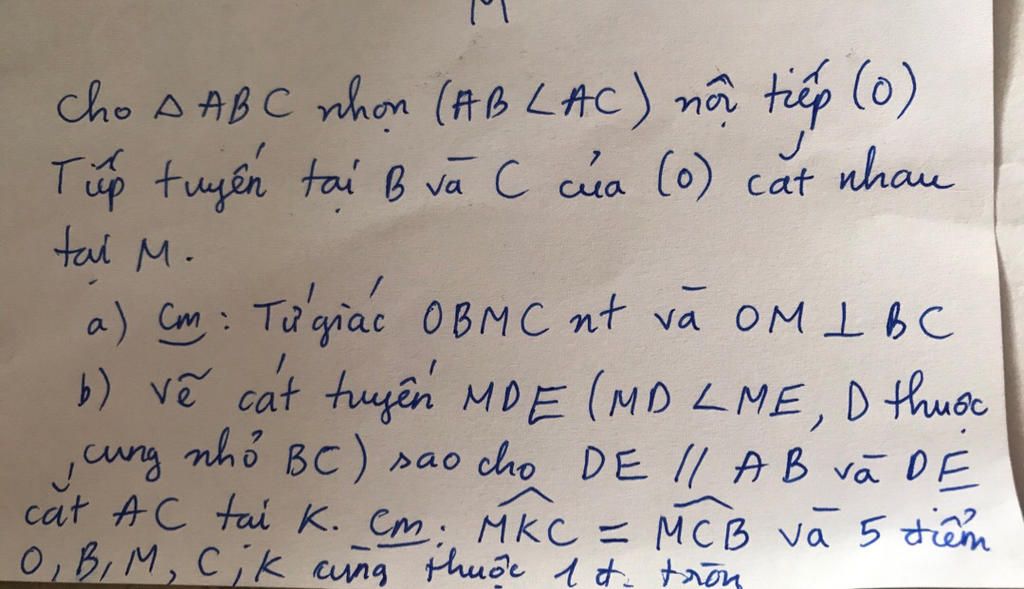 M
Cho △ABC nhọn (AB < AC) nội tiếp (O)
Tiếp tuyến tại B và C của (O) cắt nhau
tại M.
a) Cm: Tứ giác OBMC nt và OM ⊥ BC
b) vẽ cát tuyến MDE (MD < ME, D thuộc
cung nhỏ BC) sao cho DE // AB và DE
cắt AC tại K. Cm: \widehat{MKC} = \widehat{MCB} và 5 điểm
O, B, M, C, K cùng thuộc 1 đ. tròn